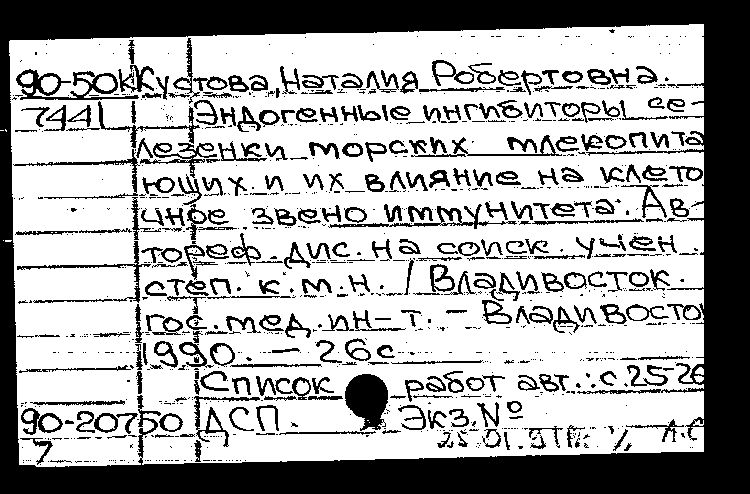 90-50к Кустова, Наталия Робертовна.
7441 Эндогенные ингибиторы се-
лезенки морских млекопита
ющих и их влияние на клето
чное звено иммунитета: Ав-
тореф. дис. на соиск. учен.
степ. к.м.н. / Владивосток.
гос. мед. ин-т. - Владивосто
1990. - 26с.
Список работ авт.: с.25-26
90-20750 ДСП. Экз.№
7 25.01.91